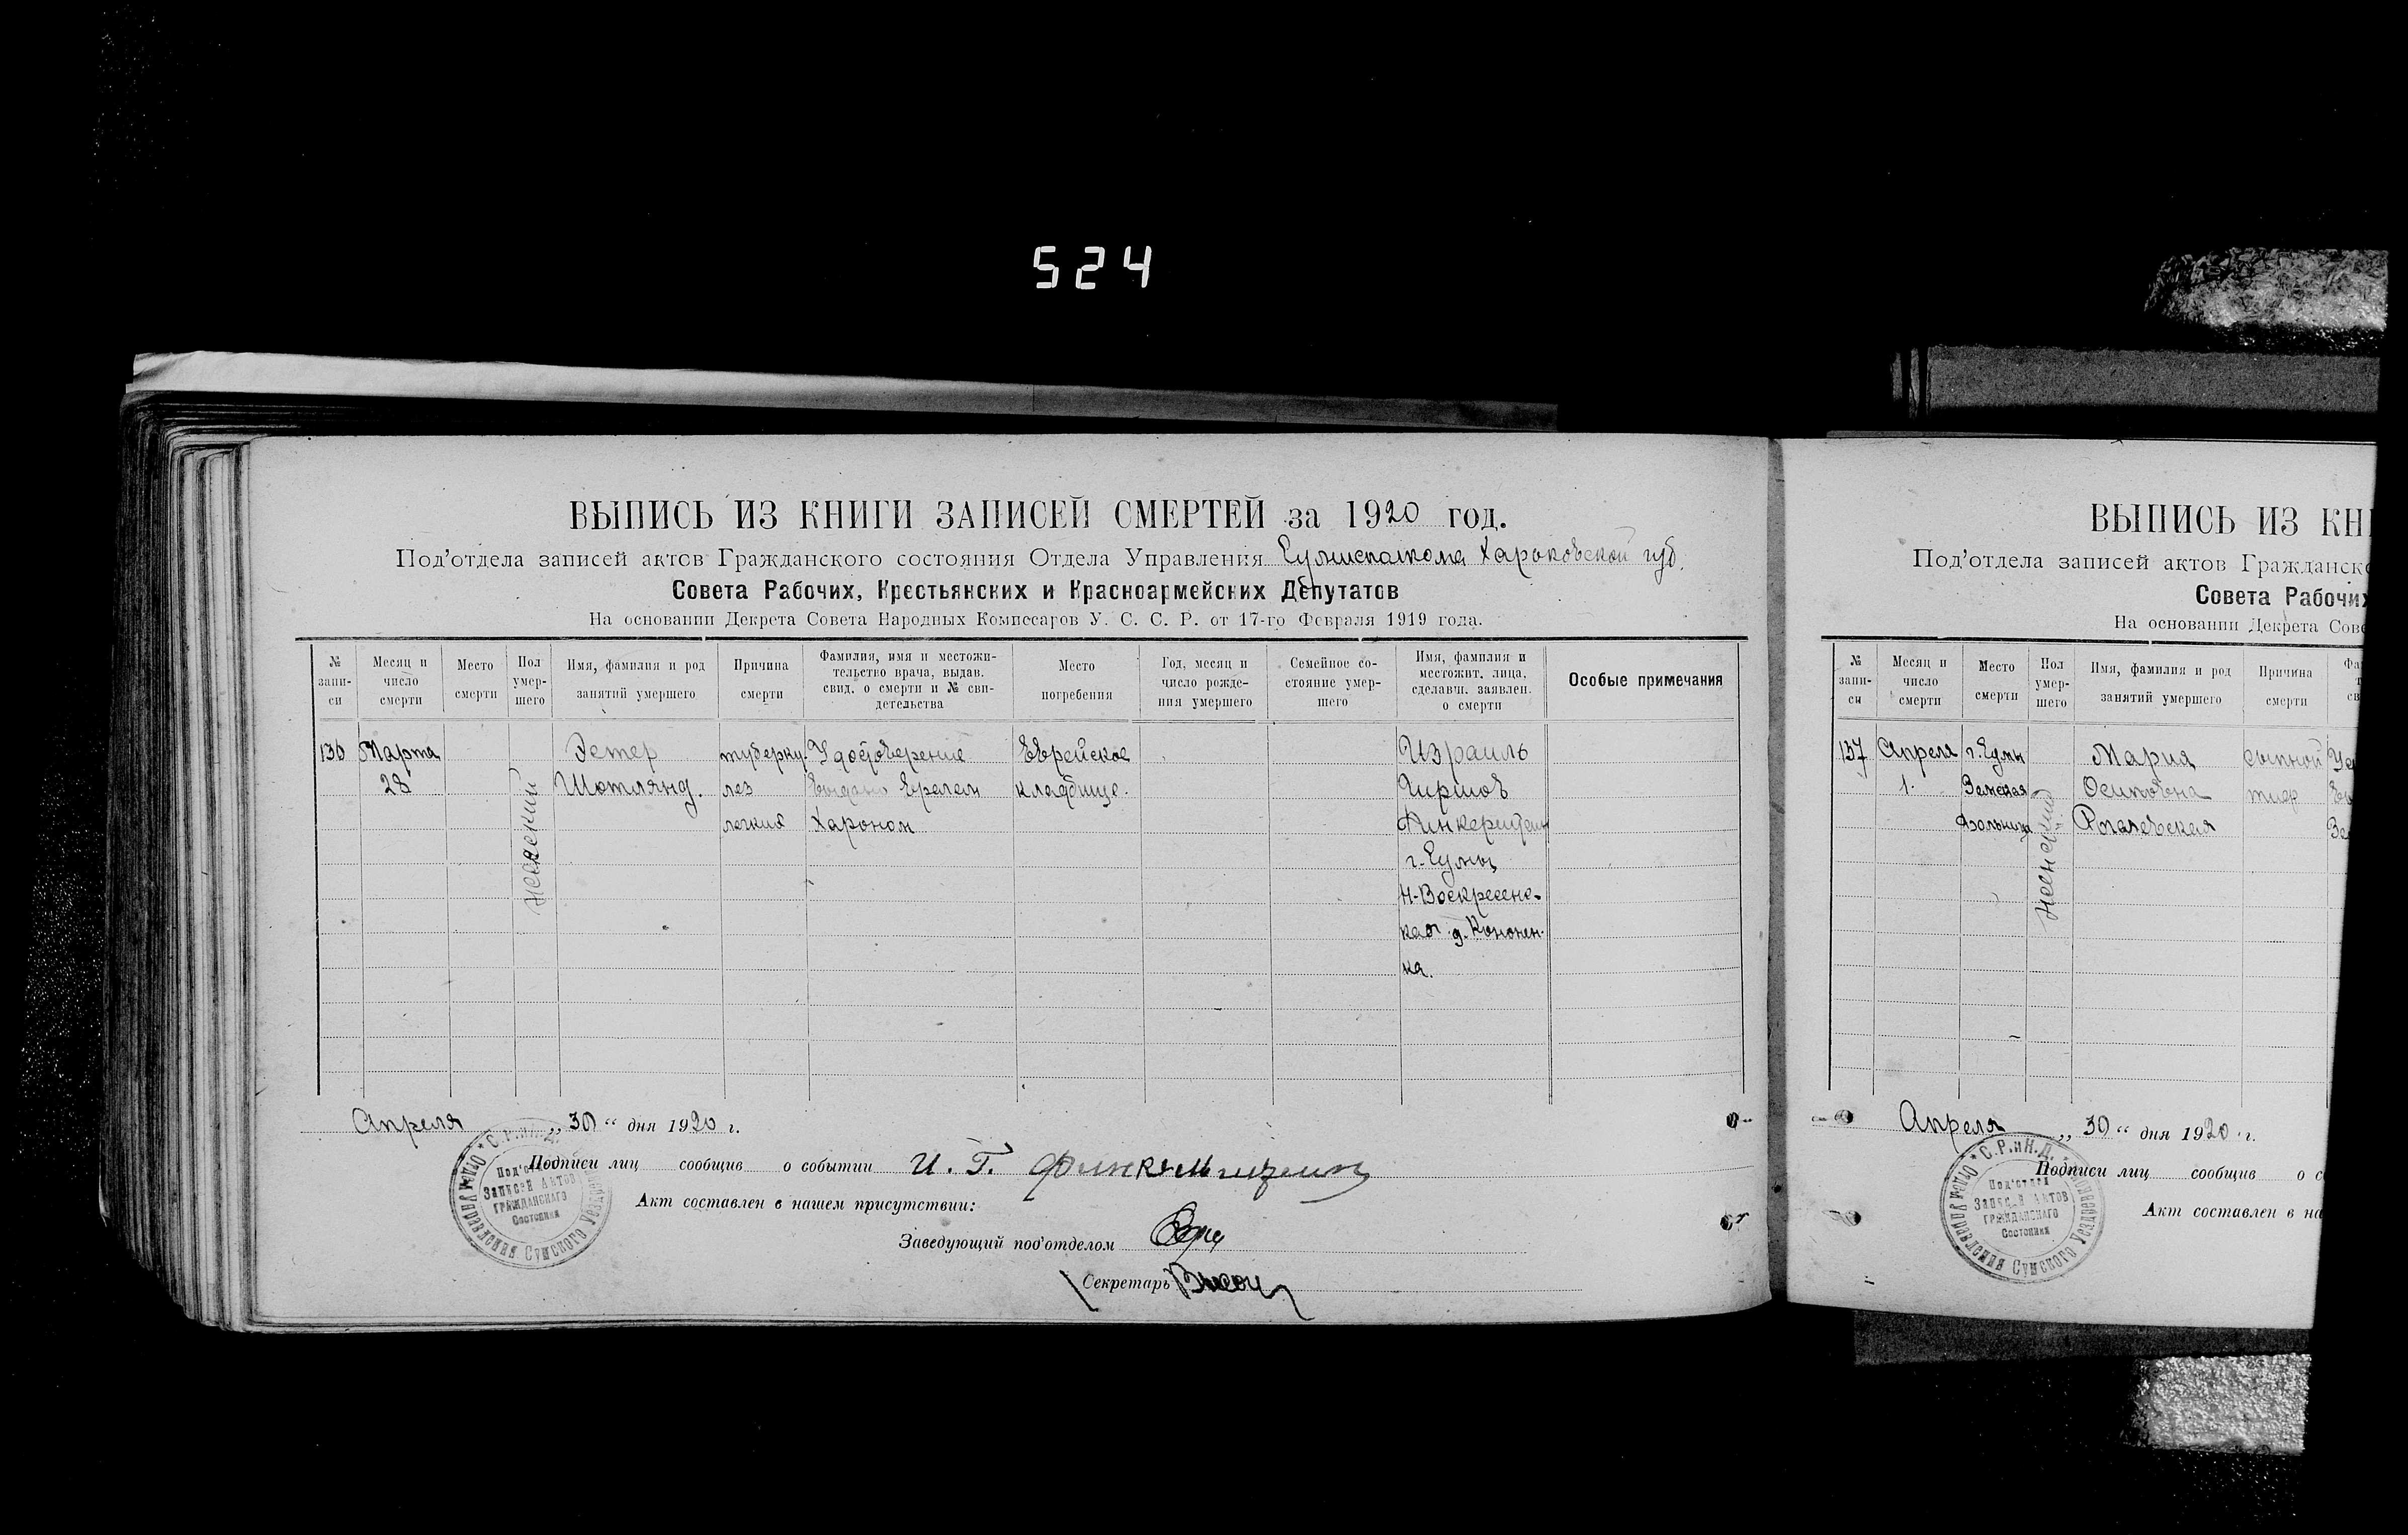 524
ВЫПИСЬ ИЗ КНИГИ ЗАПИСЕЙ СМЕРТЕЙ за 1920 год.
Под'отдела записей актов Гражданского состояния Отдела Управления Сумисполкома Харьковской губ.
Совета Рабочих, Крестьянских и Красноармейских Депутатов
На основании Декрета Совета Народных Комиссаров У. С. С. Р. от 17-го Февраля 1919 года.
№ запи- си
Месяц и число смерти
Место смерти
Пол умер- шего
Имя, фамилия и род занятий умершего
Причина смерти
Фамилия, имя и местожи- тельство врача, выдав. свид. о смерти и № сви- детельства
Место погребения
Год, месяц и число рожде- ния умершего
Семейное со- стояние умер- шего
Имя, фамилия и местожит. лица, сделавш. заявлен. о смерти
Особые примечания
136
Марта
28
женский
Эстер
Шотлянд.
туберку-
лез
легких
Удостоверение
выдано врачем
Хароном
Еврейское
кладбище.
Израиль
Гиршов
г. Сумы
Н-Воскресенс-
кая д. Кононен-
ка.
Апреля „30“ дня 1920 г.
Подписи лиц сообщив о событии И. Г.
Акт составлен в нашем присутствии:
Заведующий под'отделом
Секретарь
С.Р.и Н.Д. Отдел Управления Сумского Уездрев
Под'отдел
Записей Актов
Гражданскаго
Состояния
ВЫПИСЬ ИЗ КН
Под'отдела записей актов Гражданск
Совета Рабочих
На основании Декрета Сове
№ запи- си
Месяц и число смерти
Место смерти
Пол умер- шего
Имя, фамилия и род занятий умершего
Причина смерти
137
Апреля
1.
г. Сумы
Земская
больница
женский
Мария
Осиповна
Рогалевская
сыпной
тиф
Апреля „30“ дня 1920 г.
Подписи лиц сообщив о с
Акт составлен в на
С.Р.и Н.Д. Отдел Управления Сумского Уездрев
Под'отдел
Записей Актов
Гражданскаго
Состояния